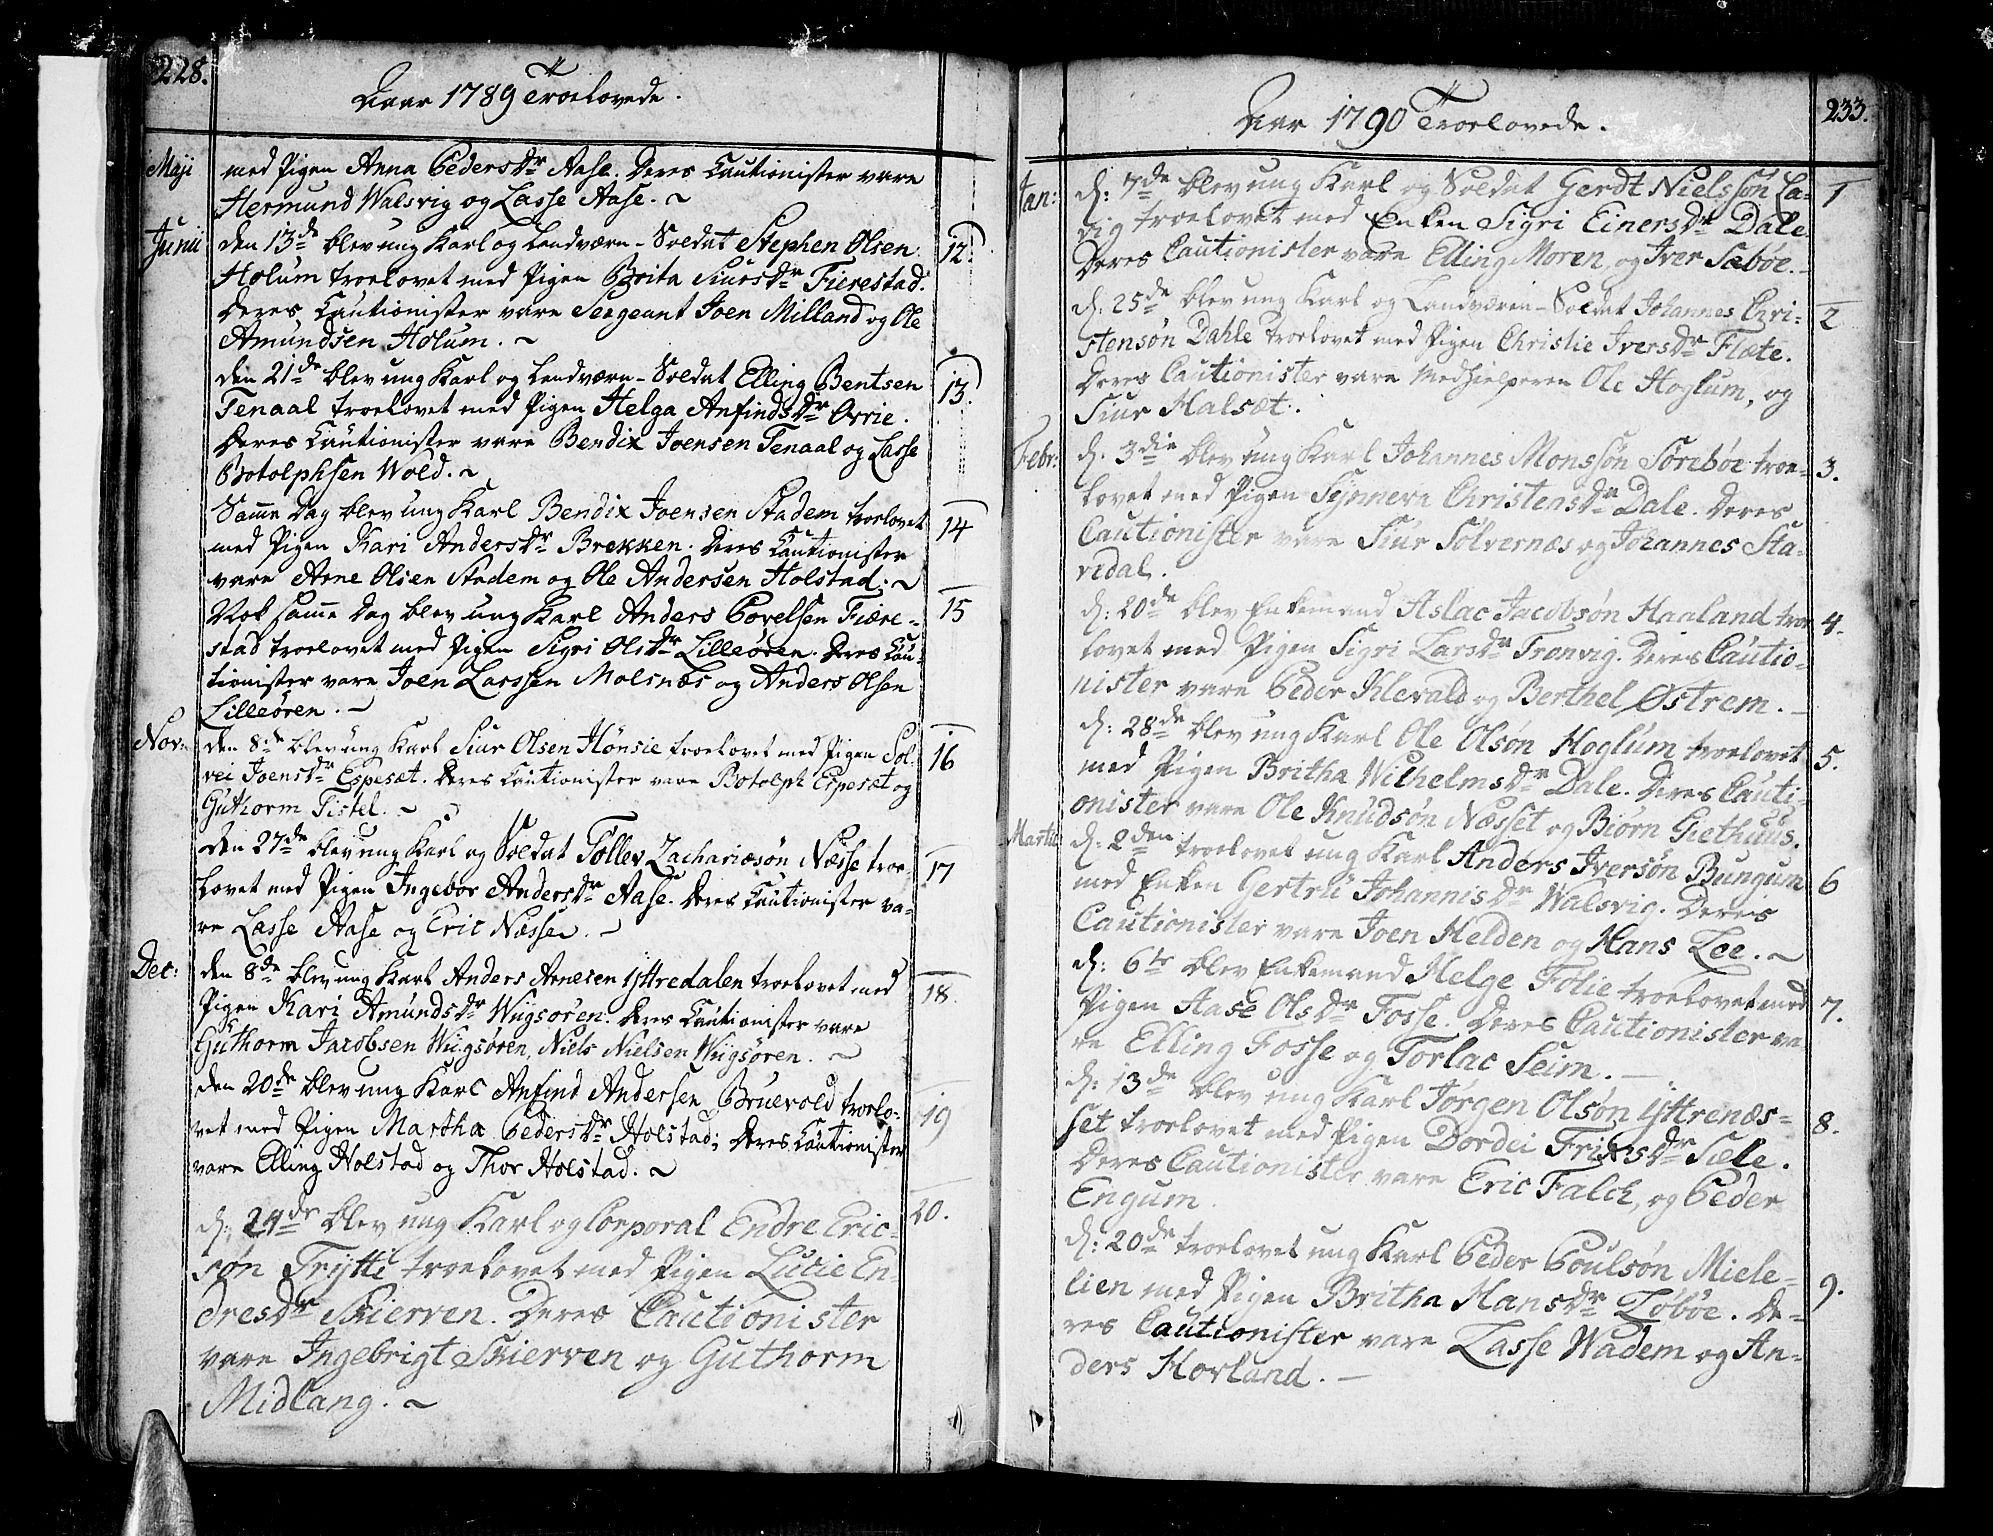 228.
Aaar 1789 Troelovede.
Maji med Pigen Anna PedersDr Aase. Deres Cautionister vare
Hermund Walsvig og Lasse Aase. ~
Junii den 13de blev ung Karl og Landværn-Soldat Stephen Olsen 12.
Holum troelovet med Pigen Brita SiursDr Fierestad.
Deres Cautionister vare Sergeant Joen Milland og Ole
Amundsen Holum. ~
den 21de blev ung Karl og Landværn-Soldat Elling Bentsen 13.
Tenaal troelovet med Pigen Helga AnfindsDr Orrie.
Deres Cautionister vare Bendix Joensen Tenaal og Lasse
Botolphsen Wold. ~
Samme Dag blev ung Karl Bendix Joensen Stadem troelovet 14
med Pigen Kari AndersDr Brekken. Deres Cautionister
vare Arne Olsen Stadem og Ole Andersen Holstad. ~
Nok samme Dag blev ung Karl Anders Povelsen Fiære- 15
stad troelovet med Pigen Sigri OlsDr Lilleøren. Deres Cau-
tionister vare Joen Larssen Molsnæs og Anders Olsen
Lilleøren. ~
Nov: den 8de blev ung Karl Siur Olsen Hønsie troelovet med Pigen Sol- 16
vei JoensDr Espesæt. Deres Cautionister vare Botolph Espesæt og
Guthorm Tistel. ~
den 27de blev ung Karl og Soldat Tollev Zachariæsøn Næsse troe- 17
lovet med Pigen Ingebor AndersDr Aase. Deres Cautionister va-
re Lasse Aase og Eric Næsse. ~
Dec: den 8de blev ung Karl Anders Arnesen Yttredalen troelovet med 18.
Pigen Kari AmundsDr Wiigsøren. Deres Cautionister vare
Guthorm Jacobsen Wiigsøren, Niels Nielsen Wiigsøren. ~
den 20de blev ung Karl Anfind Andersen Bruevold troelo- 19
vet med Pigen Martha PedersDr Holstad; Deres Cautionister
vare Elling Holstad og Thor Holstad. ~
d: 24de blev ung Karl og Corporal Endre Eric- 20.
søn Trytti troelovet med Pigen Lucie En-
dresDr Skierven. Deres Cautionister
vare Ingebrigt Skierven og Guthorm
Midlang. ~
233.
Aar 1790 Troelovede.
Jan: d: 7de blev ung Karl og Soldat Gerdt Nielssøn La- 1
dig troelovet med Enken Sigri EinersDr Dale.
Deres Cautionister vare Elling Moren, og Iver Sæbøe.
d: 25de blev ung Karl og Landværen-Soldat Johannes Chri- 2
stensøn Dahle troelovet med Pigen Christie IversDr Flæte.
Deres Cautionister vare Medhielperen Ole Hoglum, og
Siur Halsæt.
Febr: d. 3die blev ung Karl Johannes Monssøn Sørebøe troe- 3.
lovet med Pigen Synneva ChristensDr Dale. Deres
Cautionister vare Siur Solvernæs og Johannes Sta-
vedal.
d: 20de blev Enkemand Aslac Jacobsøn Haaland troe- 4.
lovet med Pigen Sigri LarsDr Trønvig. Deres Cautio-
nister vare Peder Klevald og Berthel Østrem. ~
d: 28de blev ung Karl Ole Olsøn Hoglum troelovet 5.
med Pigen Britha WilhelmsDr Dale. Deres Cauti-
onister vare Ole Knudsøn Næsset og Biørn Giethuus.
Martii d: 2den troelovet ung Karl Anders Iversøn Bungum 6
med Enken Gertru JohannisDr Walsvig. Deres
Cautionister vare Joen Helden og Hans Lee. ~
d: 6te blev Enkemand Helge Folie troelovet med 7.
Pigen Aase OlsDr Fosse. Deres Cautionister va
re Elling Fosse og Torlac Seim. ~
d: 13de blev ung Karl Jørgen Olsøn Yttrenæs- 8.
set troelovet med Pigen Dordei FrixsDr Sæle.
Deres Cautionister vare Eric Falch, og Peder
Engum
d: 20de troelovet ung Karl Peder Poulsøn Miele- 9.
lien med Pigen Britha HansDr Løbøe. De-
res Cautionister vare Lasse Wadem og An-
ders Hovland. ~